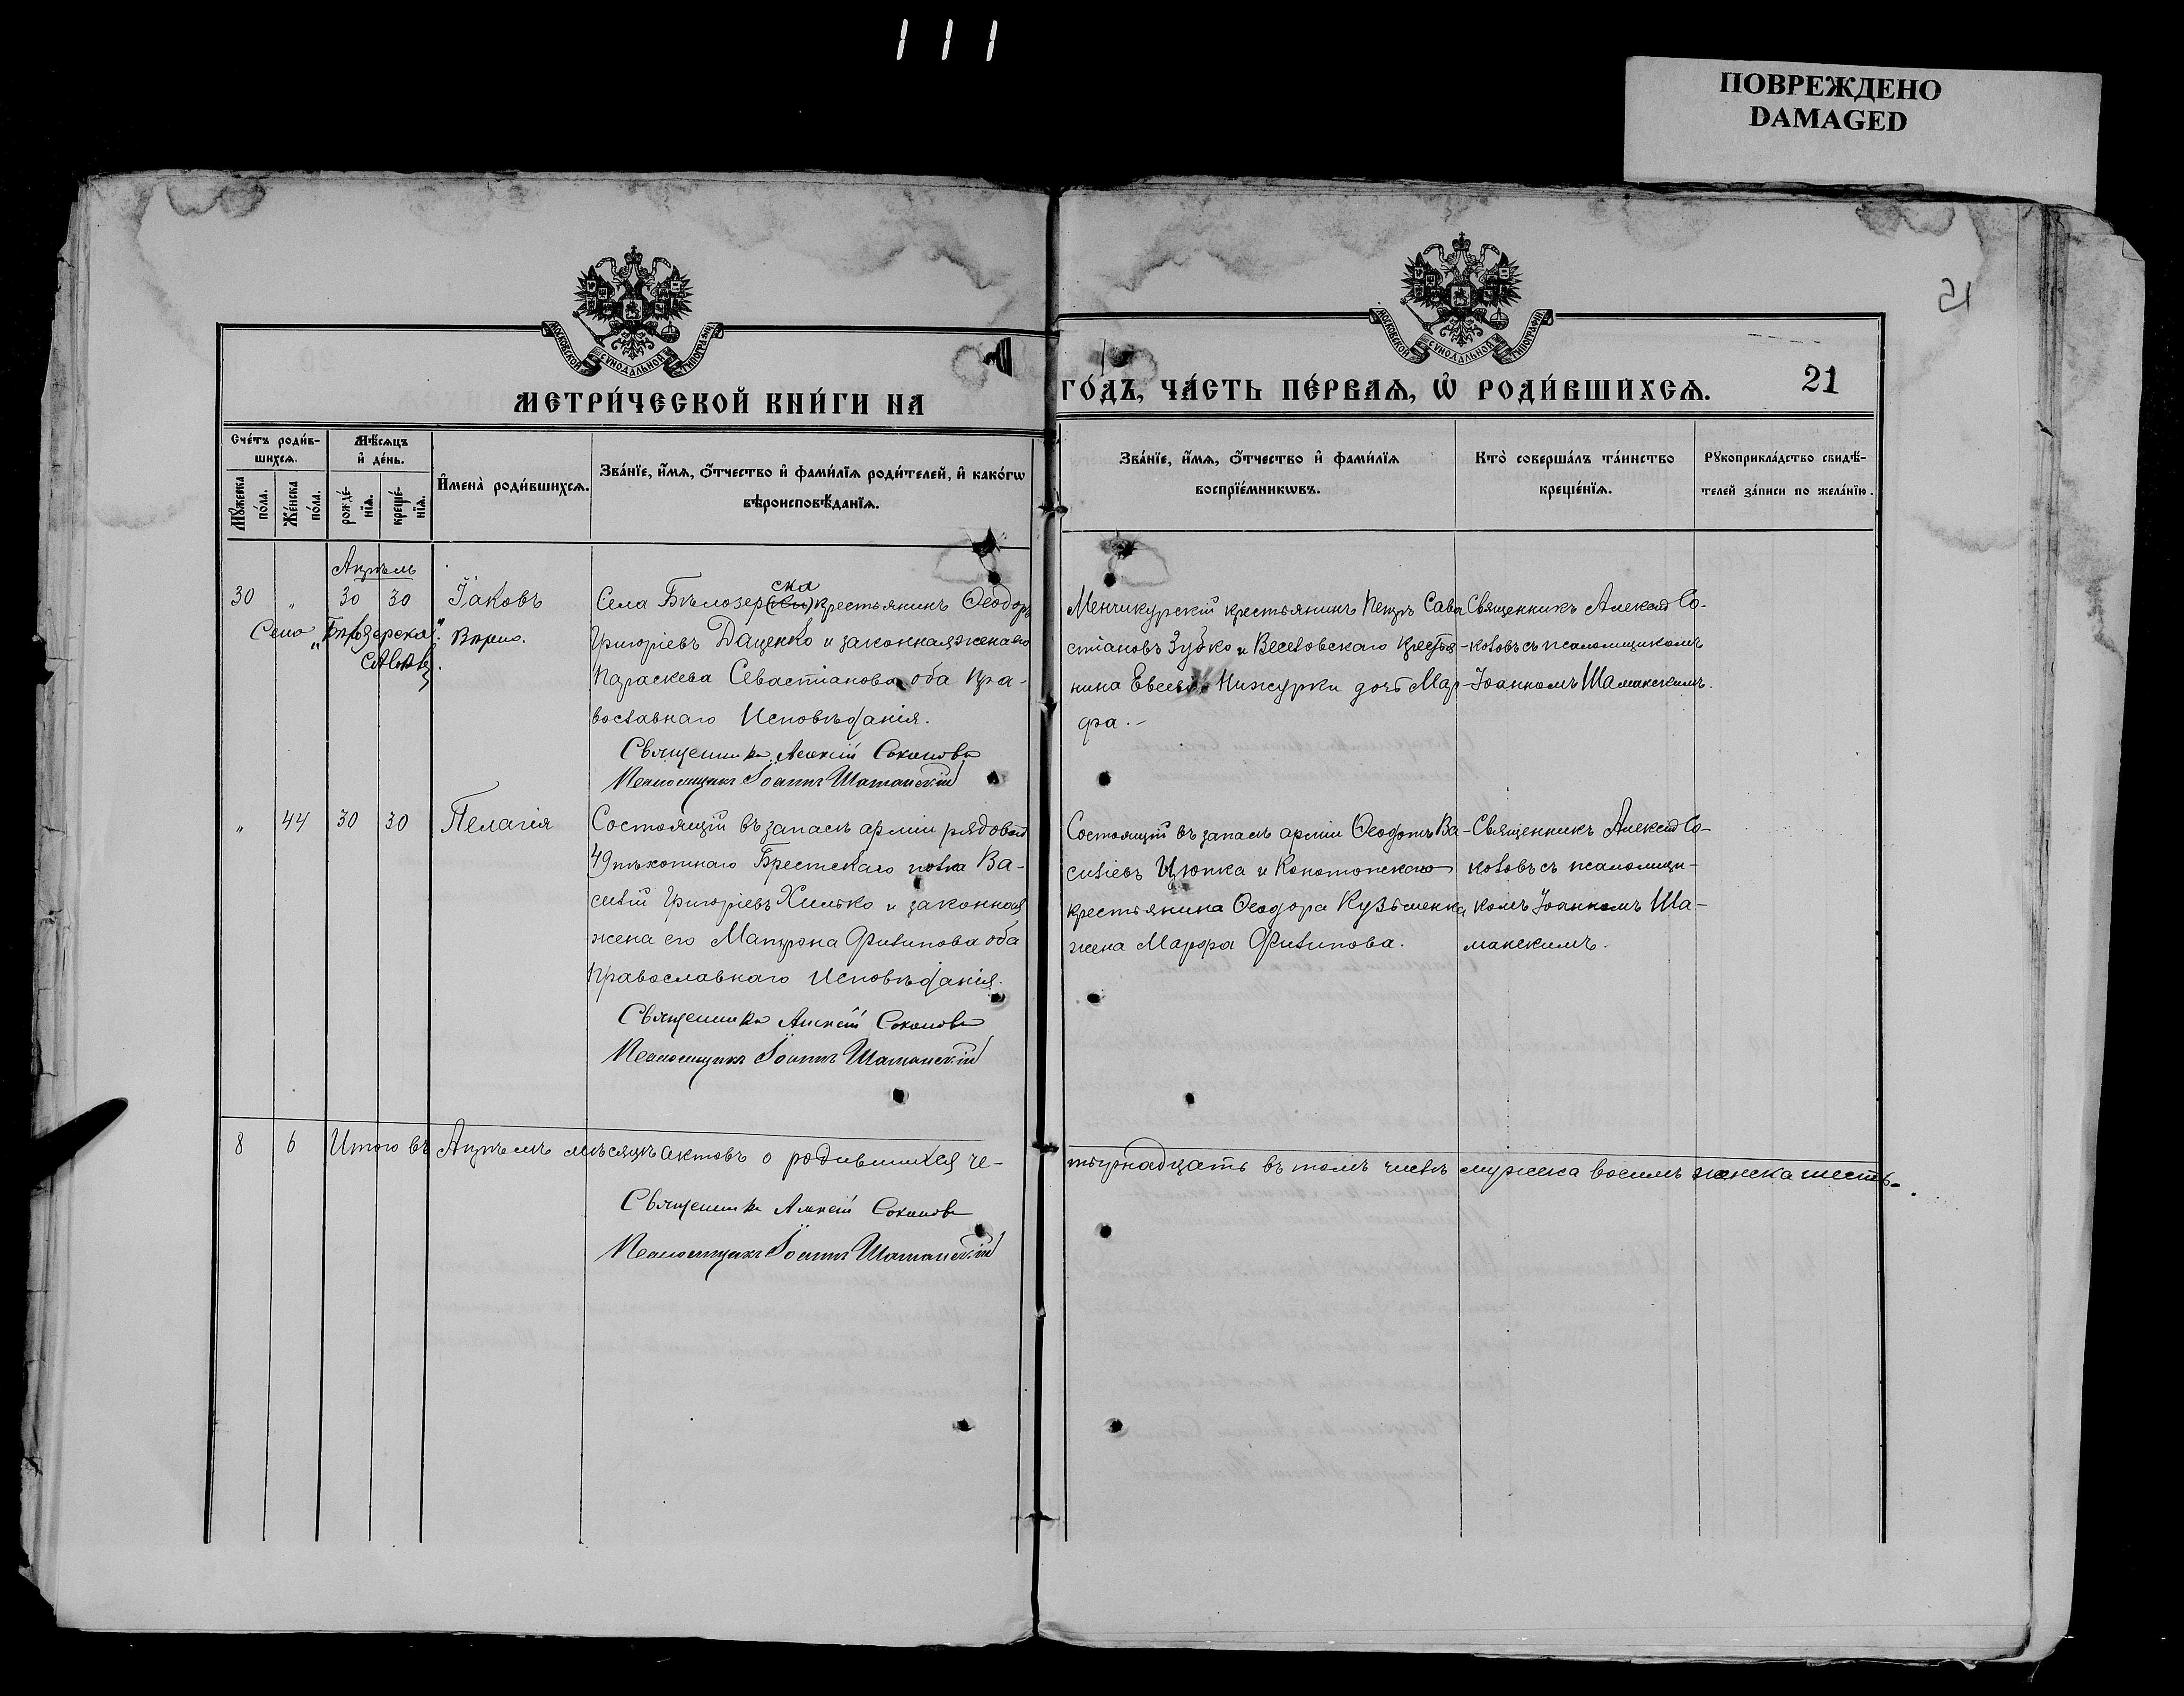 111
ПОВРЕЖДЕНО
DAMAGED
21
МОСКОВСКОЙ СѴНОДАЛЬНОЙ ТИПОГРАФІИ
МОСКОВСКОЙ СѴНОДАЛЬНОЙ ТИПОГРАФІИ
МЕТРИ́ЧЕСКОЙ КНИ́ГИ НА
ГО́ДЪ, ЧА́СТЬ ПЕ́РВАѦ, Ѡ҆ РОДИ́ВШИХСѦ.
21
Сче́тъ роди́в-
шихсѧ.
Мꙋ́жеска по́ла.
Же́нска по́ла.
Мѣ́сѧцъ
и҆ де́нь.
рожде́-
нїѧ.
креще́-
нїѧ.
И҆мена̀ роди́вшихсѧ.
Зва́нїе, и҆́мѧ, ѻ҆́тчество и҆ фами́лїѧ роди́телей, и҆ како́гѡ
вѣроисповѣ́данїѧ.
Зва́нїе, и҆́мѧ, ѻ҆́тчество и҆ фами́лїѧ
воспрїе́мникѡвъ.
Кто̀ соверша́лъ та́инство
креще́нїѧ.
Рꙋкоприкла́дство свидѣ́-
телей за́писи по жела́нїю.
Апрѣль
30 " 30 30 Іаковъ
Село „Бѣлозерска“. Вѣрно.
ска
Села Бѣлозер(ки) крестьянинъ Ѳеодоръ
Григоріевъ Даценко и законная жена его
Параскева Севастіанова оба Пра-
вославнаго Исповѣданія.
Священникъ Алексій Соколовъ
Псаломщикъ Іоаннъ Шаманскій
Менчикурскій крестьянинъ Петръ Сава
стіановъ Зубко и Веселовскаго Крестья-
нина Нижурки дочь Мар-
фа.
Священникъ Алексѣй Со-
коловъ съ псаломщикомъ
Іоанномъ Шаманскимъ.
" 44 30 30 Пелагія
Состоящій въ запасѣ арміи рядовой
49 пѣхотнаго Брестскаго полка Ва-
силій Григоріевъ Хилько и законная
жена его Матрона Филипова оба
Православнаго Исповѣданія.
Священникъ Алексій Соколовъ
Псаломщикъ Іоаннъ Шаманскій
Состоящій въ запасѣ арміи Ѳеодотъ Ва-
силіевъ Цюпка и Конотопскаго
крестьянина Ѳеодора Кузьменка
жена Марфа Филипова.
Священникъ Алексѣй Со-
коловъ съ псаломщи-
комъ Іоанномъ Ша-
манскимъ.
8 6 Итого въ Апрѣлѣ мѣсяцѣ актовъ о родившихся че-
тырнадцать въ томъ числѣ мужска восемь женска шесть.
Священникъ Алексій Соколовъ
Псаломщикъ Іоаннъ Шаманскій